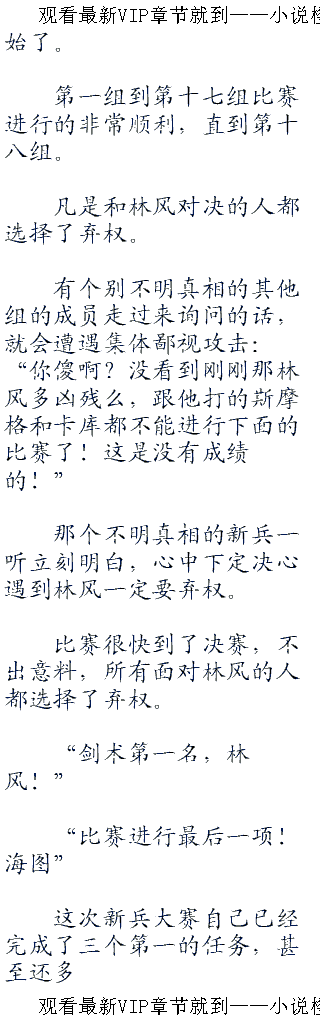 观看最新VIP章节就到——小说
始了。
第一组到第十七组比赛
进行的非常顺利，直到第十
八组。
凡是和林风对决的人都
选择了弃权。
有个别不明真相的其他
组的成员走过来询问的话，
就会遭遇集体鄙视攻击：
“你傻啊？没看到刚刚那林
风多凶残么，跟他打的斯摩
格和卡库都不能进行下面的
比赛了！这是没有成绩
的！”
那个不明真相的新兵一
听立刻明白，心中下定决心
遇到林风一定要弃权。
比赛很快到了决赛，不
出意料，所有面对林风的人
都选择了弃权。
“剑术第一名，林
风！”
“比赛进行最后一项！
海图”
这次新兵大赛自己已经
完成了三个第一的任务，甚
至还多
观看最新VIP章节就到——小说